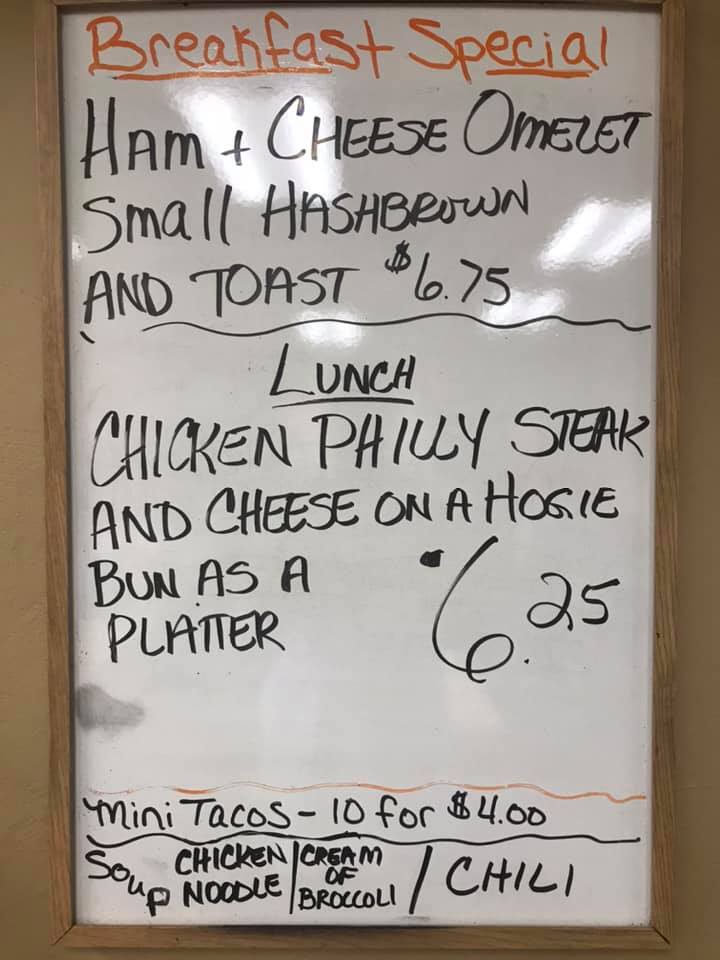 Breakfast Special
HAM + CHEESE OMELET
Small HASHBROWN
AND TOAST $6.75
LUNCH
CHICKEN PHILLY STEAK
AND CHEESE ON A HOGIE
BUN AS A
PLATTER 6.25
Mini Tacos - 10 for $4.00
Soup CHICKEN NOODLE / CREAM OF BROCCOLI / CHILI